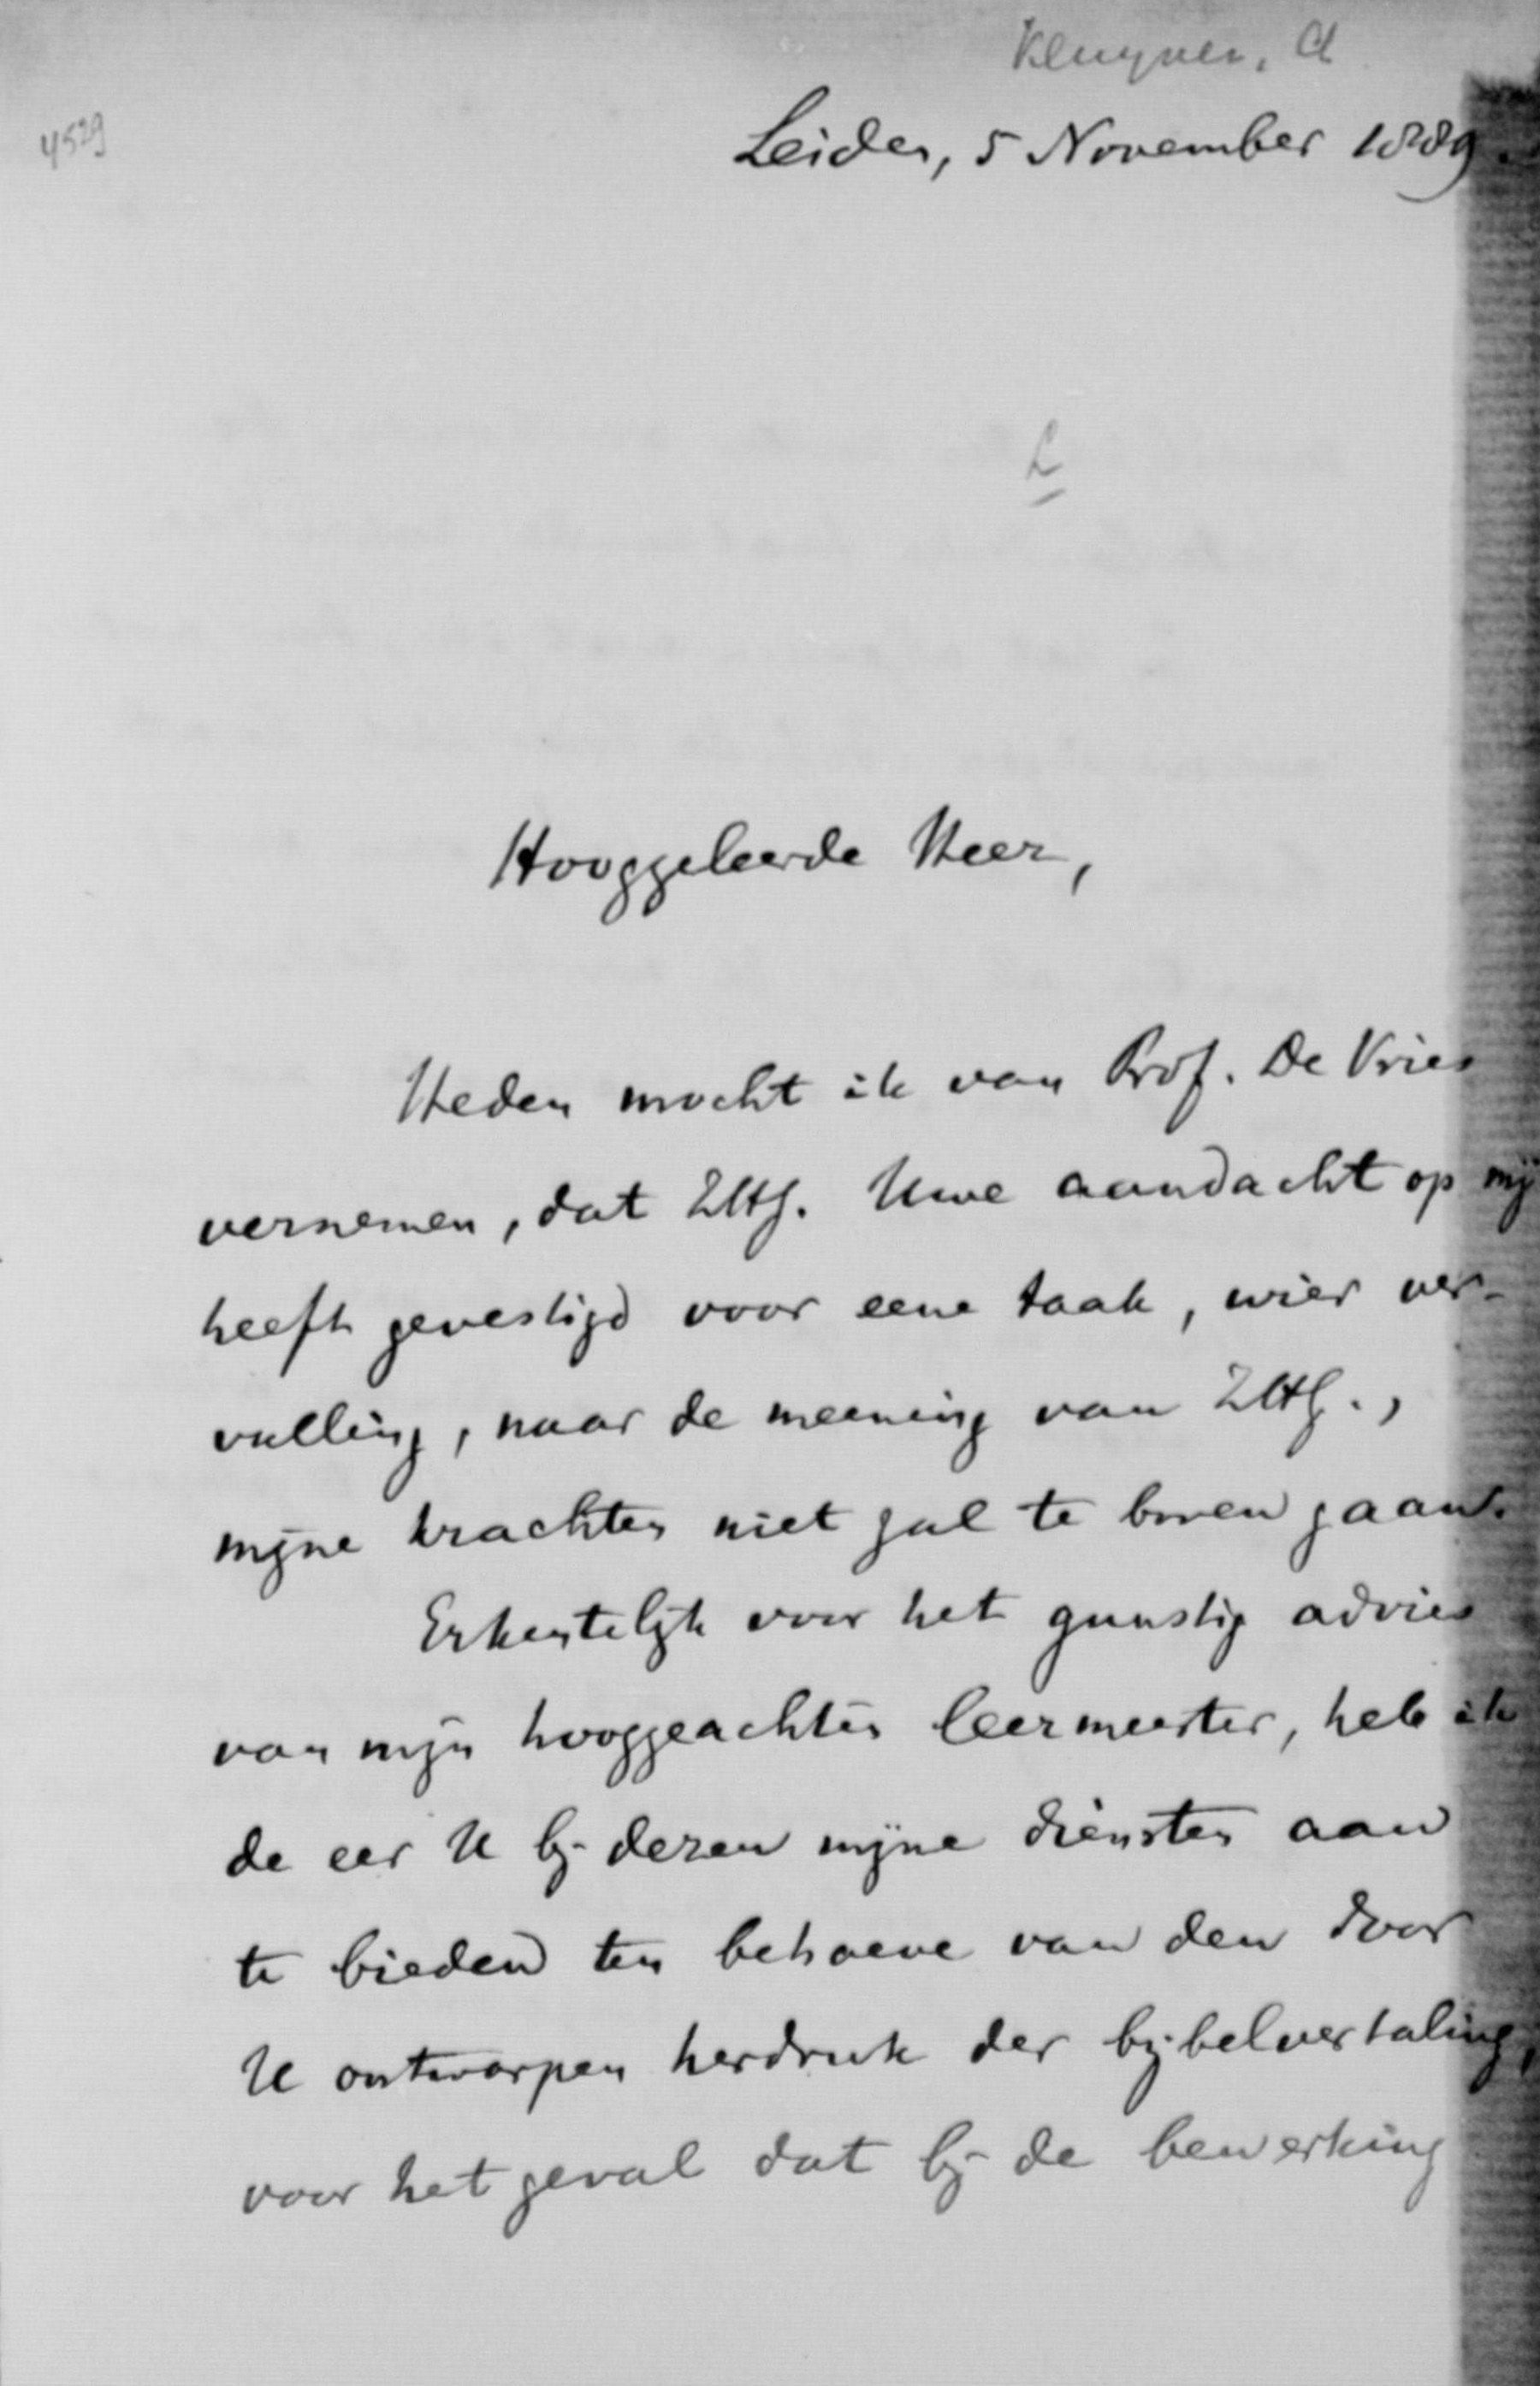 Kluyver, A
4529
Leiden, 5 November 1889.
L
Hooggeleerde Heer,
Heden mocht ik van Prof. De Vries
vernemen, dat ZHg. Uwe aandacht op mij
heeft gevestigd voor eene taak, wier ver-
vulling, naar de meening van ZHg.,
mijne krachten niet zal te boven gaan.
Erkentelijk voor het gunstig advies
van mijn hooggeachten leermeester, heb ik
de eer U bij dezen mijne diensten aan
te bieden ten behoeve van den door
U ontworpen herdruk der bijbelvertaling,
voor het geval dat bij de bewerking